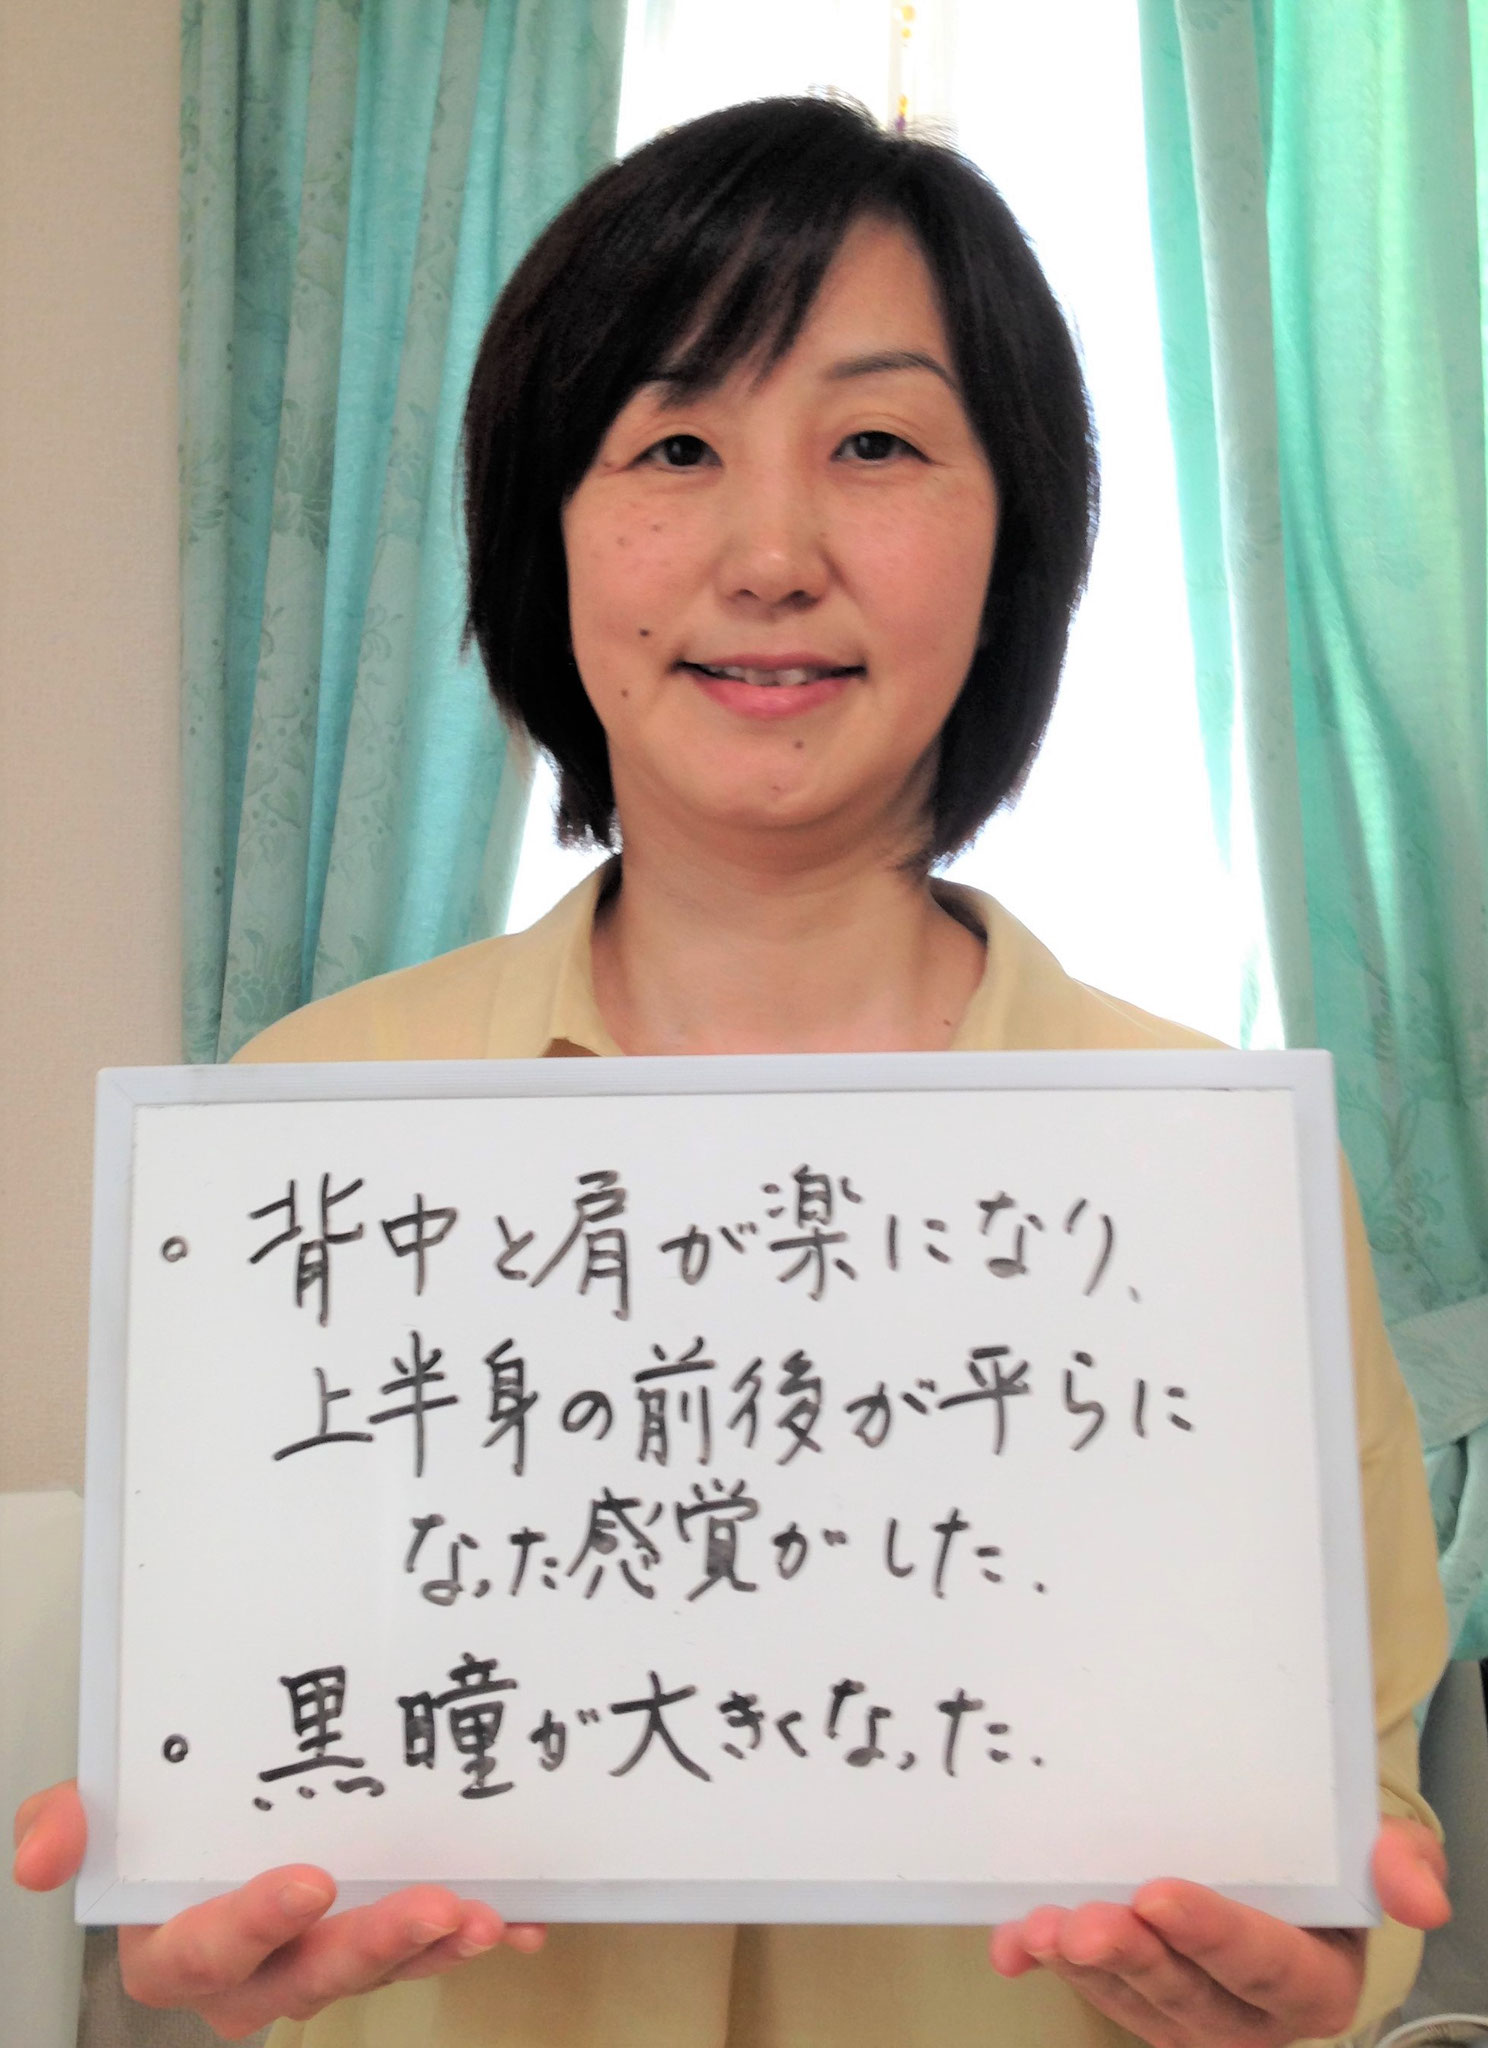 。背中と肩が楽になり、
上半身の前後が平らに
なった感覚がした.
。黒瞳が大きくなった.